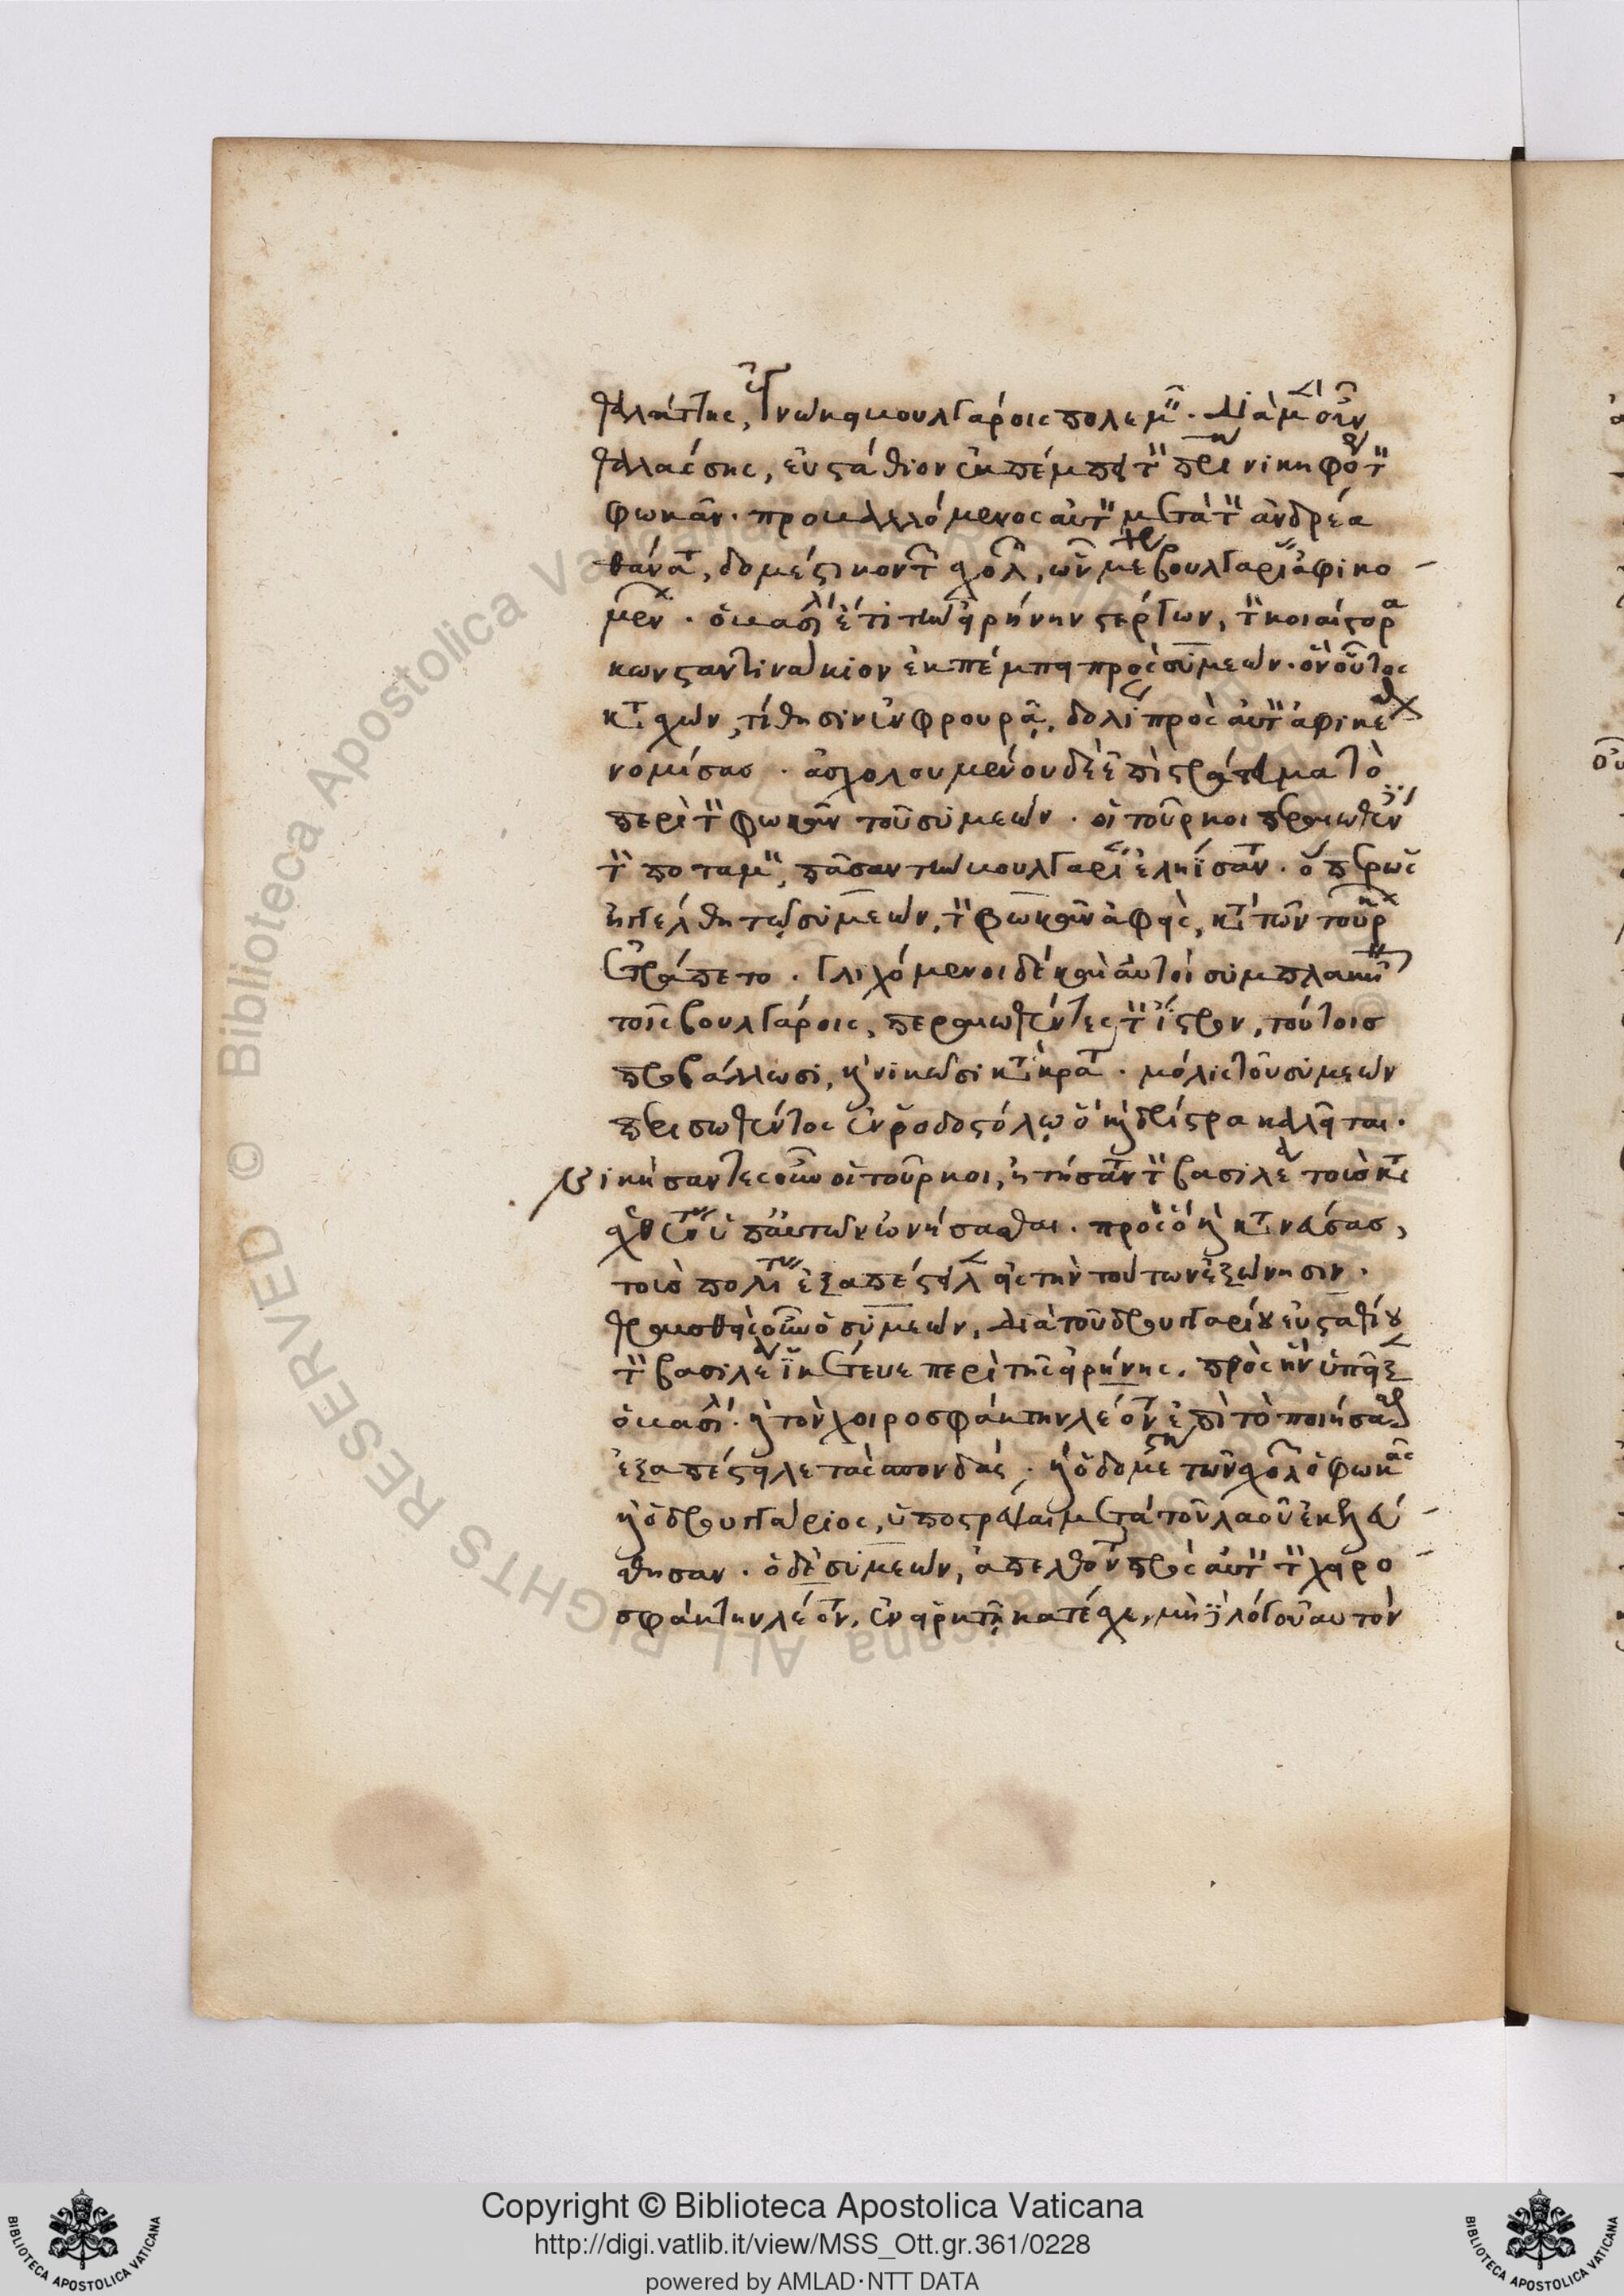 θαλάττης, ἵνα κινῇ βουλγάροις πολεμ· διὰ μέσης
θαλάσσης, εὐστάθιον ἐκπέμπει τὸν πατρίκιον νικηφόρον τὸν
φωκᾶν· προσκαλεσόμενος αὐτὸν μετὰ τὸν ἀνδρέα
θάνατ, δομέστικον τ σχολ, ὧν μὲν βουλγαρί ἀφικο
μένων · ὁ βασιλ ἔτι τὴν εἰρήνην στέργων, τὸν κοιαίστορα
κωνσταντινάκιον ἐκπέμπει πρὸς συμεών · ὃν οὗτος
κατασχών, τίθησιν ἐν φρουρᾷ, δολί πρὸς αὐτὸν ἀφικέσθαι
νομίσας · ἀσχολουμένου δὲ ἐπὶ στράτευμα τὸ
περὶ τὸν φωκᾶν τοῦ συμεών · οἱ τοῦρκοι περαιωθέντες
τὸν ποταμὸν, πᾶσαν τὴν βουλγαρί ἐληΐσαντο · ὅπερ ὡς
ἠγγέλθη τῷ συμεών, τὸν φωκᾶν ἀφεὶς, κατὰ τῶν τούρκων
ἐτράπετο · γλιχόμενοι δὲ καὶ αὐτοὶ συμπλακῆναι
τοῖς βουλγάροις, περαιωθέντες τὸν ἴστρον, τούτοις
προσβάλλωσι, καὶ νικῶσι κατὰ κράτος · μόλις τοῦ συμεών
περισωθέντος ἐν ῥοδοστόλῳ ὃ καὶ δρίστρα καλεῖται ·
νικήσαντες οὖν οἱ τοῦρκοι, ᾐτήσαντο τὸν βασιλέα τοὺς
ὑπ' αὐτῶν ὠνήσασθαι · πρὸς ὃ καὶ κατανεύσας,
τοὺς πολίτας ἐξαπέστειλεν εἰς τὴν τούτων ἐξώνησιν ·
οὖν ὁ συμεών, διὰ τοῦ δρουγγαρίου εὐσταθίου
τὸν βασιλέα ἱκέτευε περὶ τῆς εἰρήνης · πρὸς ἣν ὑπεῖξεν
ὁ βασιλ · καὶ τὸν χοιροσφάκτην λέοντα ἐπὶ τὸ ποιῆσαι
ἐξαπέστειλε τὰς σπονδάς · καὶ ὁ δομέστικος τῶν σχολῶν ὁ φωκᾶς
καὶ ὁ δρουγγάριος, ὑποστρέψαι μετὰ τοῦ λαοῦ ἐκελεύ
σθησαν · ὁ δὲ συμεών, ἀπελθόντα πρὸς αὐτὸν τὸν χοιρο
σφάκτην λέοντα, ἐν εἱρκτῇ κατέσχε, μηδὲ λόγου αὐτὸν
Copyright © Biblioteca Apostolica Vaticana
http://digi.vatlib.it/view/MSS_Ott.gr.361/0228
powered by AMLAD·NTT DATA